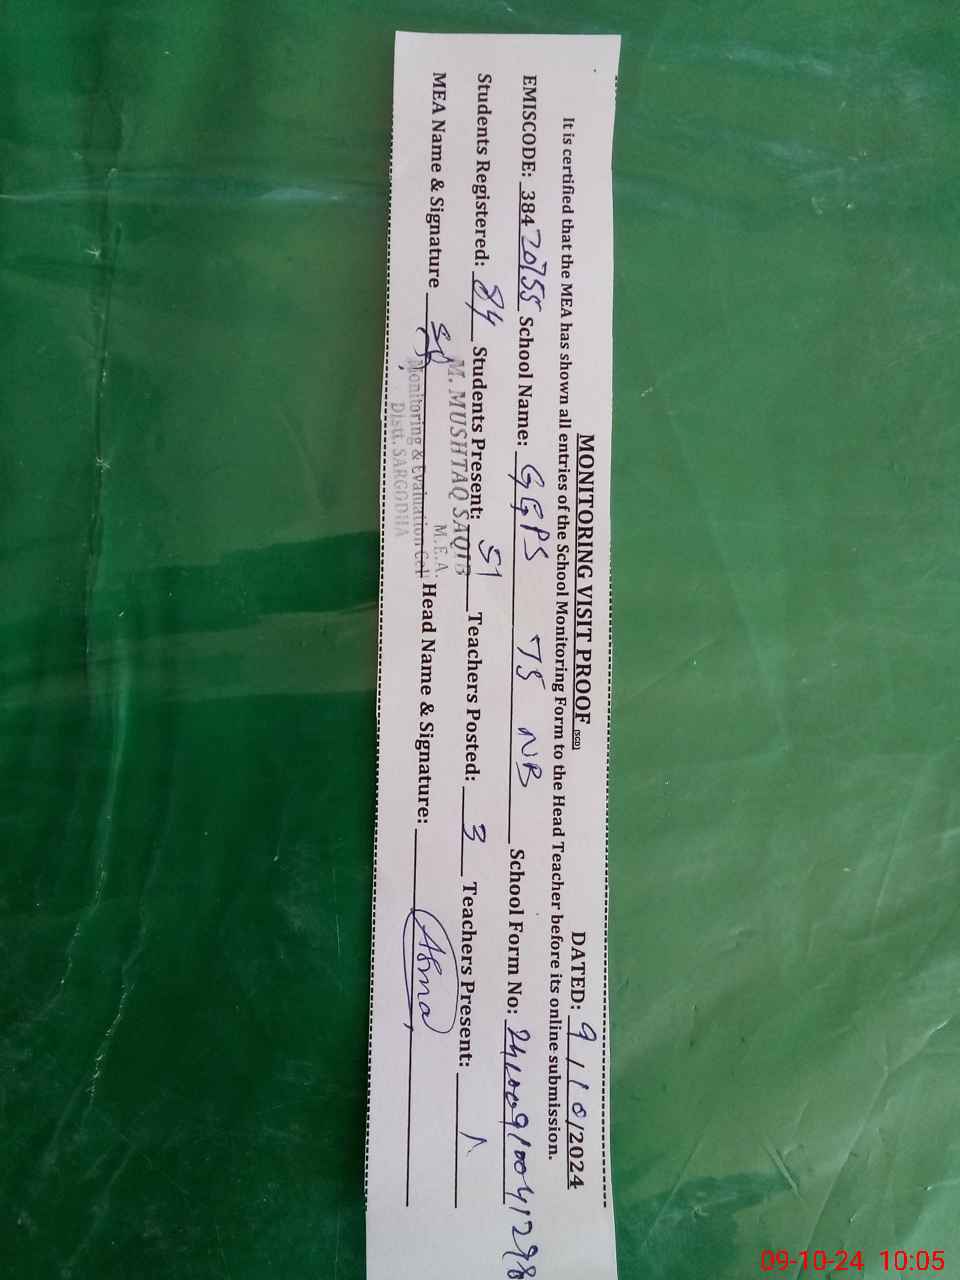 MONITORING VISIT PROOF (SCD) DATED: 9/10/2024
It is certified that the MEA has shown all entries of the School Monitoring Form to the Head Teacher before its online submission.
EMISCODE: 38420755 School Name: GGPS 75 NB School Form No:
Students Registered: 84 Students Present: 51 Teachers Posted: 3 Teachers Present:
MEA Name & Signature Head Name & Signature: Asma
M. MUSHTAQ SAQIB
M.E.A.
Monitoring & Evaluation Cell
Distt. SARGODHA
09-10-24 10:05